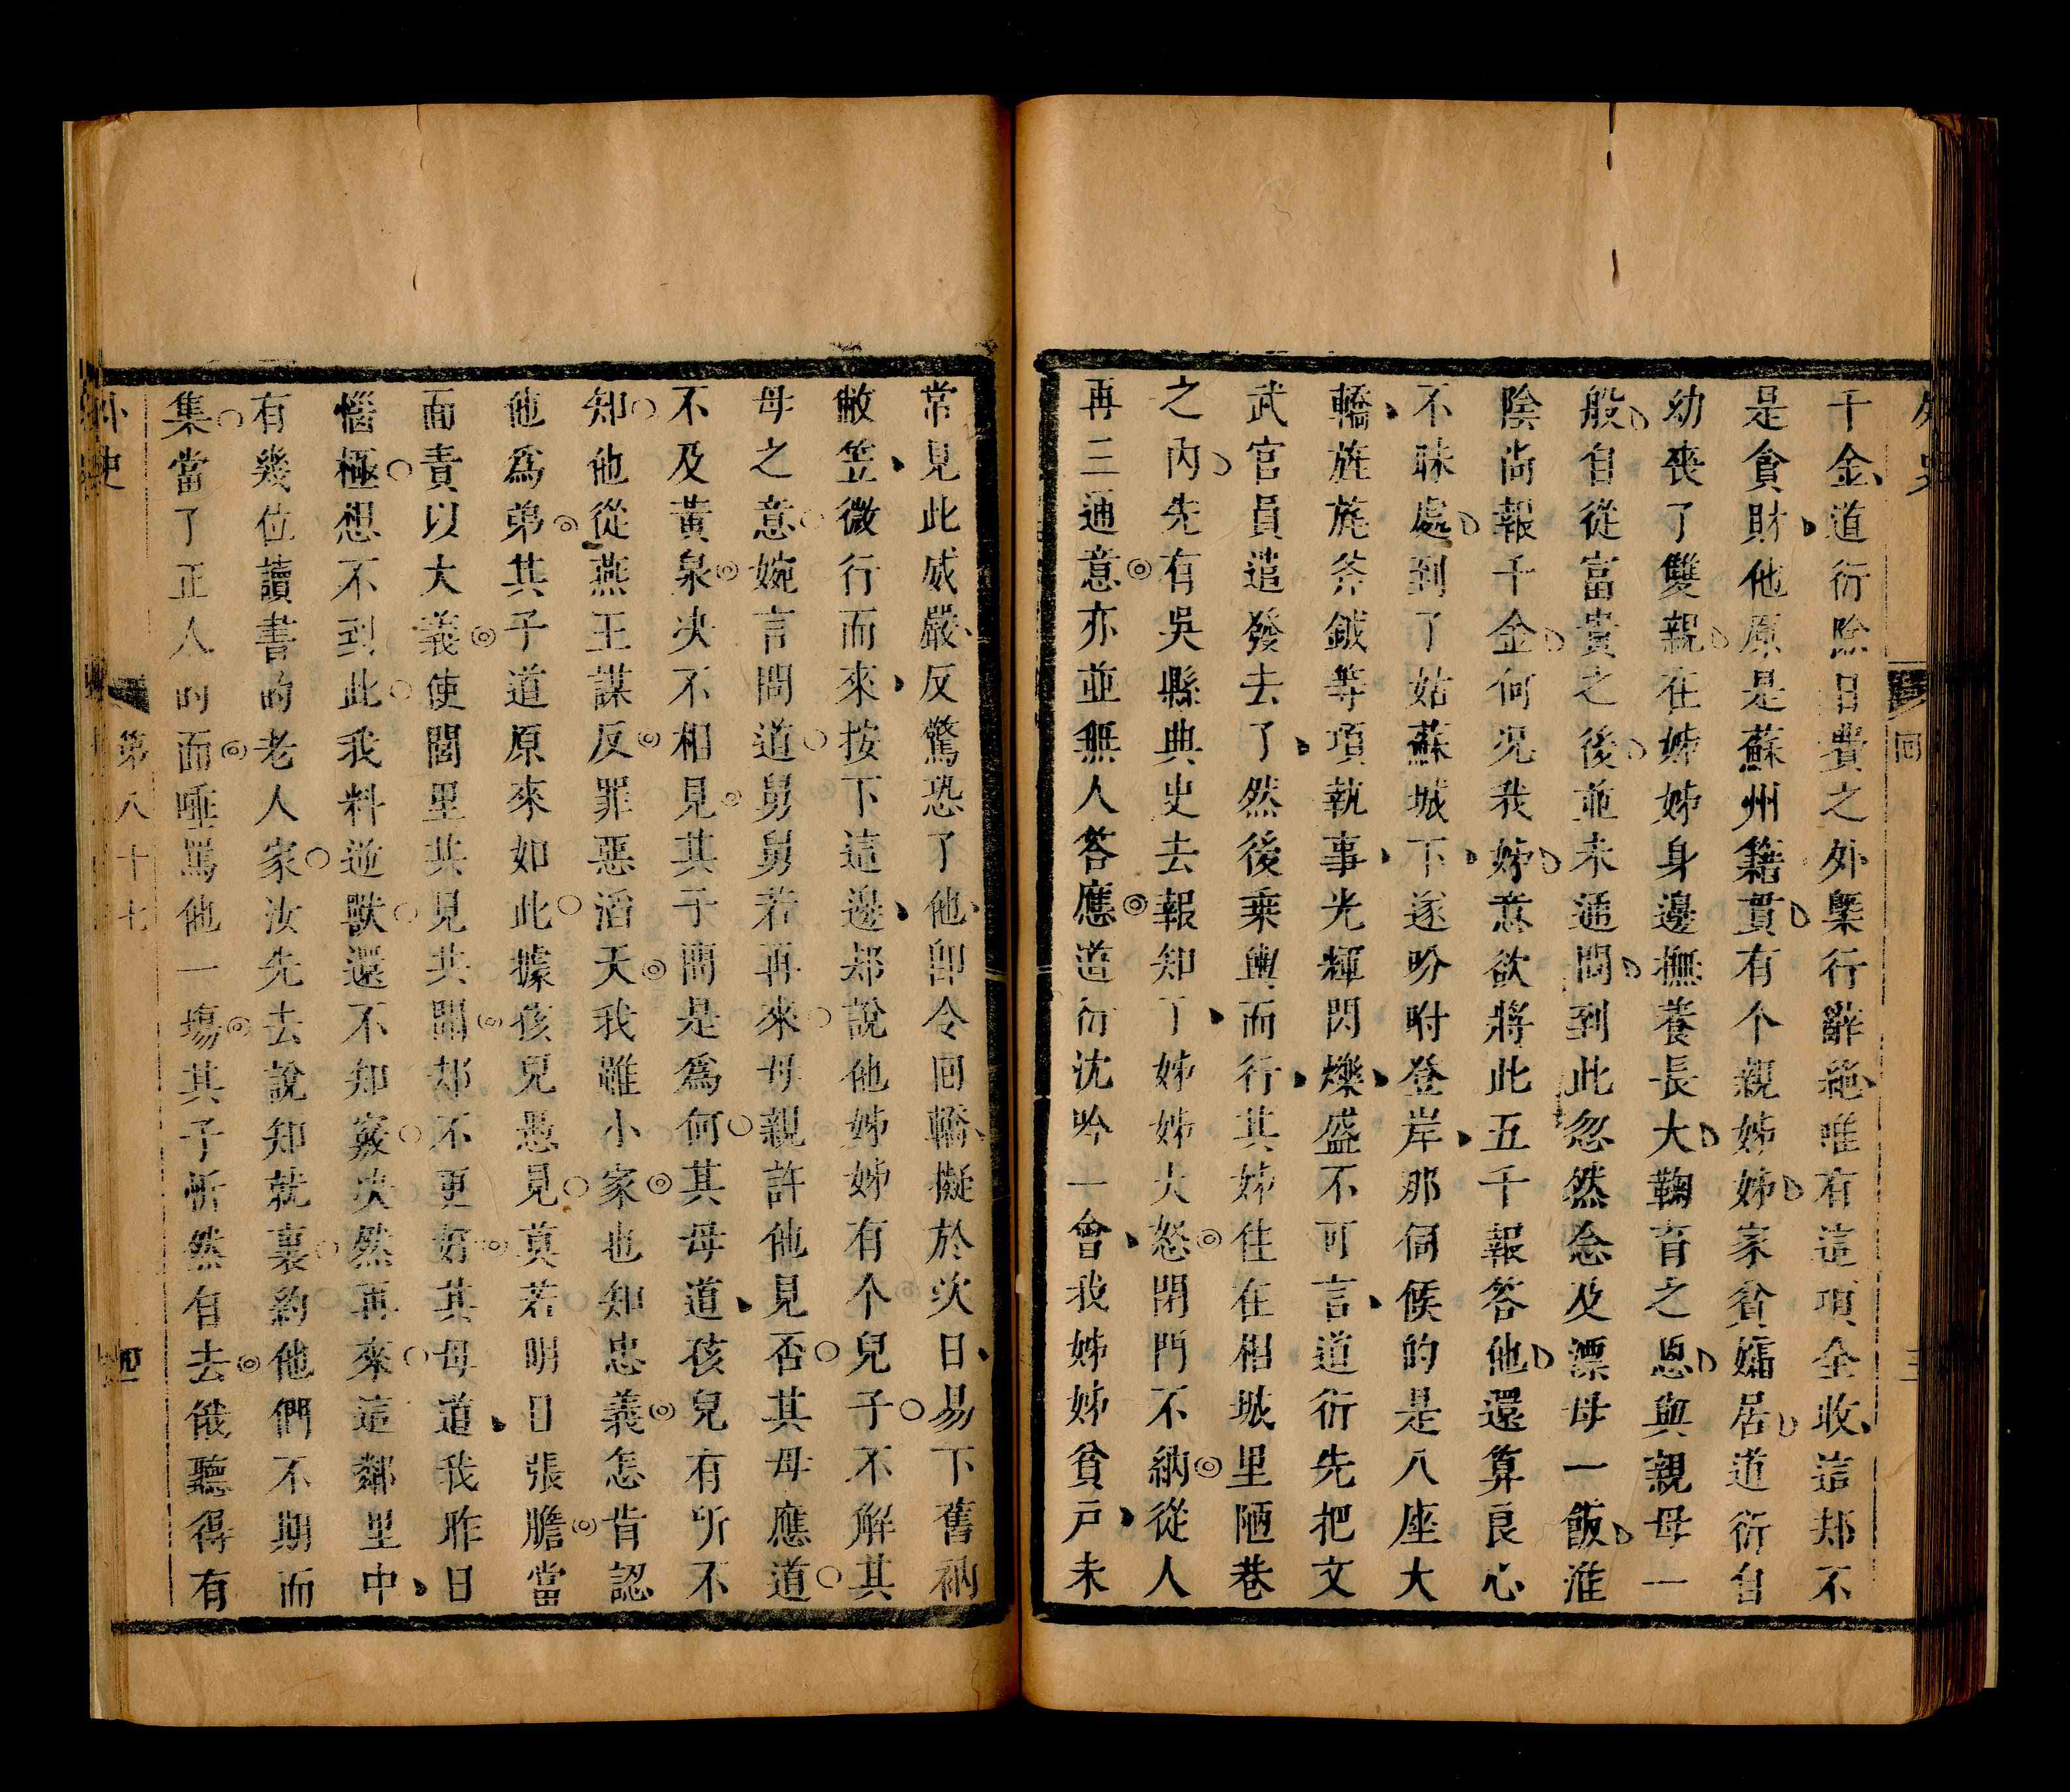 千金道衍除日費之外槩行辭絶唯有這項全收這却不
是貪財他原是蘇州籍貫有个親姊姊家貧孀居道衍自
幼喪了雙親在姊姊身邊撫養長大鞠育之恩與親母一
般自從富貴之後並未通問到此忽然念及漂母一飯淮
陰尚報千金何况我姊意欲將此五千報答他還算良心
不昧處到了姑蘇城下遂吩咐登岸那伺候的是八座大
轎旌旄斧鉞等項執事光輝閃爍盛不可言道衍先把文
武官員遣發去了然後乘輿而行其姊住在相城里陋巷
之內先有吳縣典史去報知了姊姊大怒閉門不納從人
再三通意亦並無人答應道衍沈吟一會我姊姊貧戸未
常見此威嚴反驚恐了他卽令回轎擬於次日易下舊衲
敝笠微行而來按下這邊却說他姊姊有个兒子不解其
母之意婉言問道舅舅若再來母親許他見否其母應道
不及黃泉决不相見其子問是爲何其母道孩兒有所不
知他從燕王謀反罪惡滔天我雖小家也知忠義怎肯認
他爲弟其子道原來如此據孩兒愚見莫若明日張膽當
面責以大義使閭里共見共聞却不更好其母道我昨日
惱極想不到此我料逆獸還不知竅决然再來這鄰里中
有幾位讀書的老人家汝先去說知就裏約他們不期而
集當了正人的面唾罵他一塲其子忻然自去俄聽得有
外史 第八十七 四